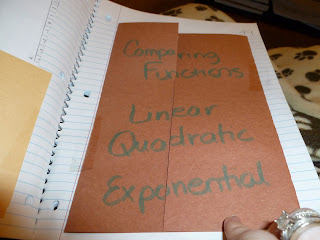 Comparing
Functions
Linear
Quadratic
Exponential